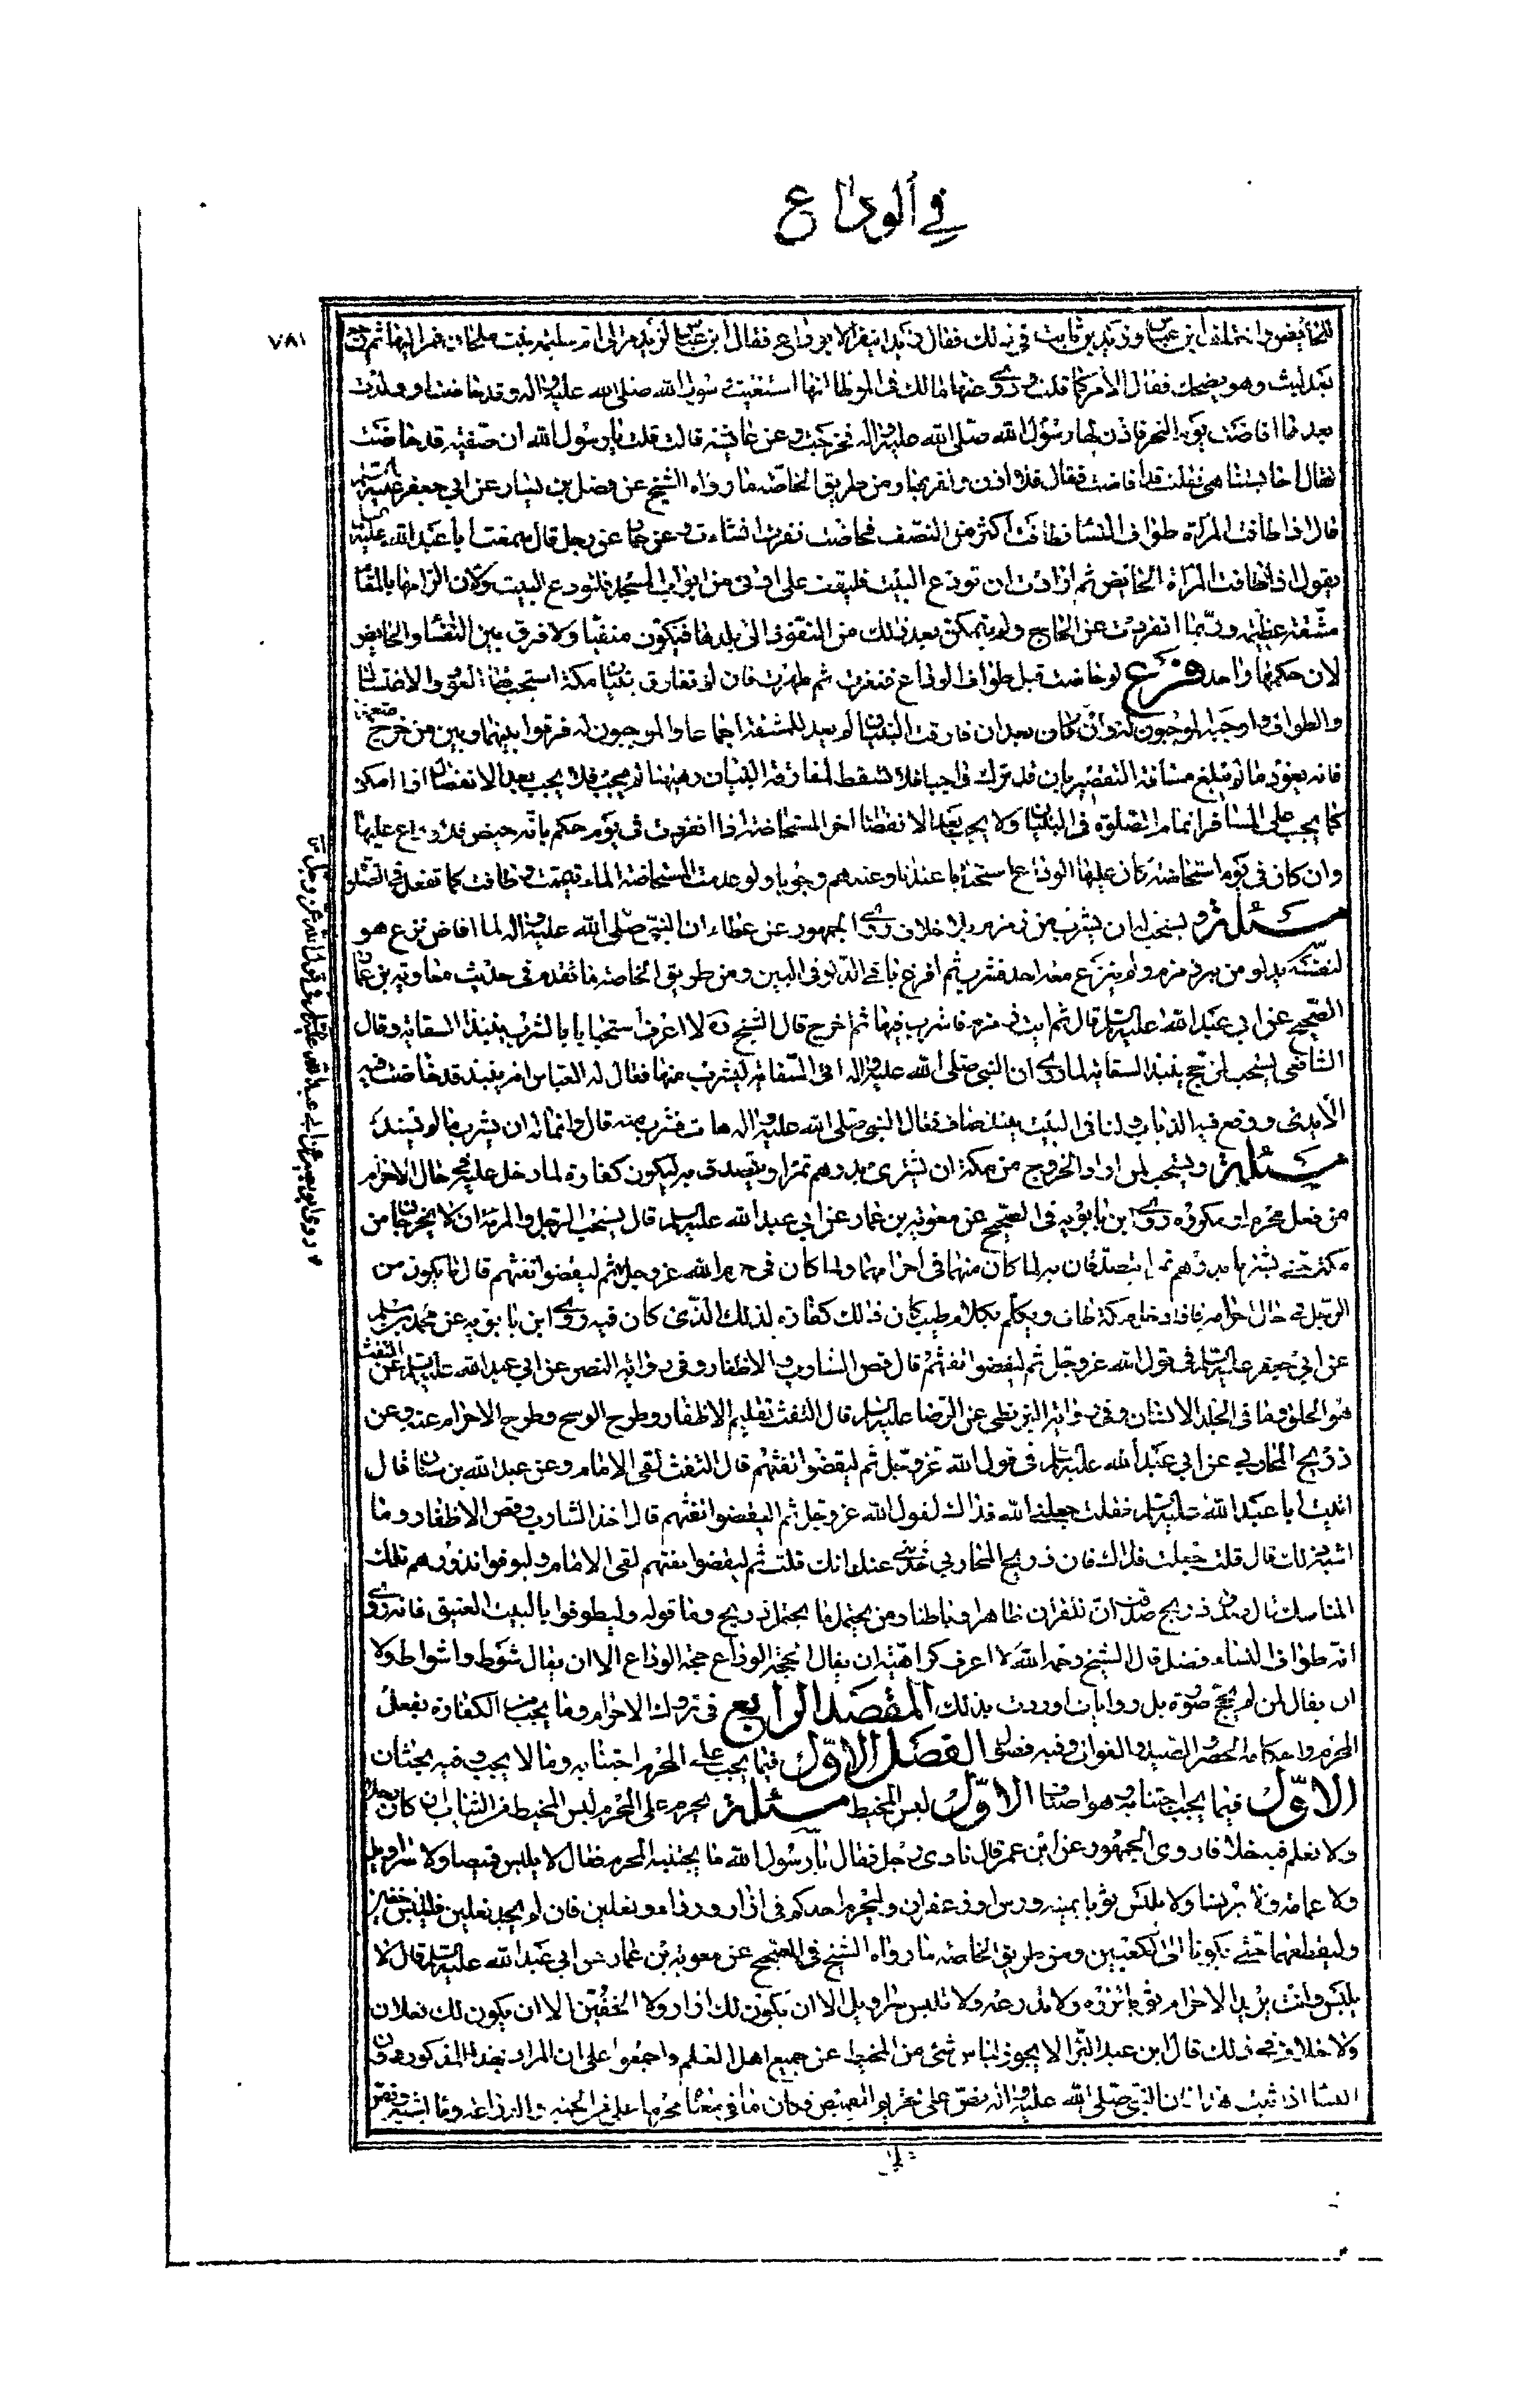 في الوداع
٧٨١
للحائض واختلف ابن عباس وزيد بن ثابت في ذلك فقال زيد لا تنفر الا بوداع فقال ابن عباس لزيد مر الى ام سليم بنت ملحان فمر اليها ثم رجع
بعد ليث وهو يضحك فقال الأمر كما قلت وروى عنها مالك في الموطا انها استفتيت رسول الله صلى الله عليه واله وقد حاضت او ولدت
بعد ما افاضت يوم النحر فاذن لها رسول الله صلى الله عليه واله فخرجت وعن عائشة قالت قلت يا رسول الله ان صفية قد حاضت
فقال احابستنا هي فقلت قد افاضت فقال فلا اذن ومن طريق الخاصة ما رواه الشيخ عن فضيل بن يسار عن ابي جعفر عليه السلم
قال اذا طافت المرأة طواف النساء فطافت أكثر من النصف فحاضت نفرت ان شاءت وعن حماد عن رجل قال سمعت ابا عبد الله عليه السلم
يقول اذا طافت المرأة الحائض ثم ارادت ان تودع البيت فليقف على ادنى من ابواب المسجد فلتودع البيت ولان الزامها بالمقام
مشقة عظيمة وربما انفردت عن الحاج ولم يتمكن بعد ذلك من النفوذ الى بلدها فيكون منفيا ولا فرق بين النفساء والحايض
لان حكمهما واحد فرع لو حاضت قبل طواف الوداع فنفرت ثم طهرت فان لم تفارق بنيان مكة استحب لها العود والاغتسال
والطواف واوجبه الموجبون له وان كان بعد ان فارقت البنيان لم يعد للمشقة اجماعا والموجبون له فرقوا بينهما وبين من خرج متعمدا
فانه يعود ما لم يبلغ مسافة التقصير بان قد ترك واجبا فلا تسقط لمفارقة البنيان وهيهنا لم يجب فلا يجب بعد الانفصال اذا امكن
كما يجب على المسافر اتمام الصلوة في البنيان ولا يجب بعد الانفصال اخر المستحاضة اذا انفردت في يوم حكم بانه حيض فلا وداع عليها
وان كان في يوم استحاضة كان عليها الوداع استحبابا عندنا وعندهم وجوبا ولو عدمت المستحاضة الماء تيممت وطافت كما تفعل في الصلوة
مسئلة ويستحب له ان يشرب من زمزم بلا خلاف روى الجمهور عن عطاء ان النبي صلى الله عليه واله لما افاض نزع هو
لنفسه بدلو من بئر زمزم ولم ينزع معه احد فشرب ثم افرغ باقي الدلو في البئر ومن طريق الخاصة ما تقدم في حديث معاوية بن عمار
الصحيح عن ابي عبد الله عليه السلم قال ثم ايت زمزم فاشرب فيها ثم اخرج قال الشيخ ره لا اعرف استحبابا بالشرب بنبيذ السقاية وقال
الشافعي يستحب لمن حج بنبيذ السقاية لما روى ان النبي صلى الله عليه واله اتى السقاية ليشرب منها فقال له العباس انه نبيذ قد خاضت فيه
الأيدي ووقع فيه الذباب ولنا في البيت نبيذ صاف فقال النبي صلى الله عليه واله هات فشرب منه قال وانما له ان يشرب ما لم يشتد
مسئلة ويستحب لمن اراد الخروج من مكة ان يشترى بدرهم تمرا ويتصدق به ليكون كفارة لما دخل عليه في حال الاحرام
من فعل محرم او مكروه روى ابن بابويه في الصحيح عن معوية بن عمار عن ابي عبد الله عليه السلم قال يستحب للرجل والمراة ان لا يخرجا من
مكة حتى يشتريا بدرهم تمرا يتصدقان به لما كان منهما في احرامهما ولما كان في حرم الله عز وجل ثم ليقضوا تفثهم قال ما يكون من
الرجل في حال احرامه فاذا دخل مكة طاف وتكلم بكلام طيب كان ذلك كفارة لذلك الذي كان فيه وروى ابن بابويه عن محمد بن مسلم
عن ابي جعفر عليه السلم في قول الله عز وجل ثم ليقضوا تفثهم قال قص الشارب والاظفار وفي رواية النضر عن ابي عبد الله عليه السلم عن التفث
هو الحلق وما في الجلد الانسان وفي رواية البزنطي عن الرضا عليه السلم قال التفث تقليم الاظفار وطرح الوسخ وطرح الاحرام عنه وعن
ذريح المحاربي عن ابي عبد الله عليه السلم في قول الله عز وجل ثم ليقضوا تفثهم قال التفث لقى الامام وعن عبد الله بن سنان قال
اتيت ابا عبد الله عليه السلم فقلت جعلني الله فداك لقول الله عز وجل ثم ليقضوا تفثهم قال اخذ الشارب وقص الاظفار وما
اشبه ذلك قال قلت جعلت فداك فان ذريح المحاربي حدثني عنك انك قلت ثم ليقضوا تفثهم لقى الامام وليوفوا نذورهم تلك
المناسك قال صدق ذريح وصدقت ان للقران ظاهرا وباطنا ومن يحتمل ما يحتمل ذريح وما قوله وليطوفوا بالبيت العتيق فانه روى
انه طواف النساء فصل قال الشيخ رحمه الله لا اعرف كراهية ان يقال لحجة الوداع حجة الوداع الا ان يقال شوط واشواط ولا
ان يقال لمن لم يحج صرورة بل روايات اوردت بذلك المقصد الرابع في تروك الاحرام وما يجب من الكفارة بفعل
المحرم واحكام المحصور الصيد والفوات وفيه فصول الفصل الاول فيما يجب على المحرم اجتنابه وما لا يجب وفيه بحثان
الاول فيما يجب اجتنابه وهو اصناف الاول لبس المخيط مسئلة يحرم على المحرم لبس المخيط من الثياب ان كان رجلا
ولا نعلم فيه خلافا روى الجمهور عن ابن عمر قال نادى رجل فقال يا رسول الله ما يجتنبه المحرم فقال لا يلبس قميصا ولا سراويل
ولا عمامة ولا برنسا ولا يلبس ثوبا يمسه ورس او زعفران وليحرم احدكم في ازار ورداء ونعلين فان لم يجد نعلين فليلبس خفين
وليقطعهما حتى يكونا الى الكعبين ومن طريق الخاصة ما رواه الشيخ في الصحيح عن معوية بن عمار عن ابي عبد الله عليه السلم قال لا
يلبس وانت يريد الاحرام ثوبا تزره ولا تدرعه ولا تلبس سراويل الا ان يكون لك ازار ولا الخفين الا ان يكون لك نعلان
ولا خلاف في ذلك قال ابن عبد البر الا يجوز لباس شئ من المخيط عن جميع اهل العلم واجمعوا على ان المراد بهذا الذكور دون
النساء اذا ثبت هذا فان النبي صلى الله عليه واله نص على تحريم القميص وكان ما في معناه محرما على من الجبة والدراعة وما اشبه ونص
على
وروى ابو بصير عن ابي عبد الله عليه السلم في قول الله عز وجل